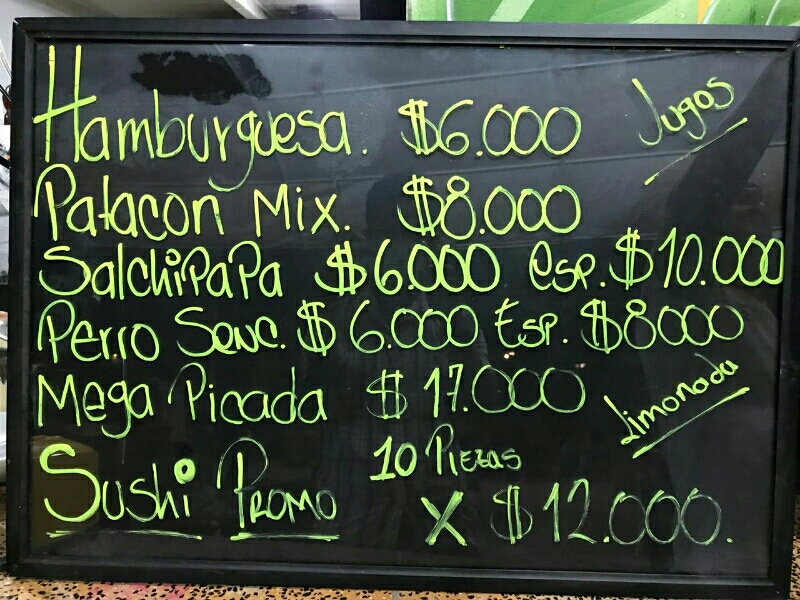 Hamburguesa. $6.000
Jugos
Patacon Mix. $8.000
Salchipapa $6.000 esp. $10.000
Perro Senc. $6.000 Esp. $8000
Mega Picada $17.000
Limonada
Sushi Promo 10 Piezas
x $12.000.